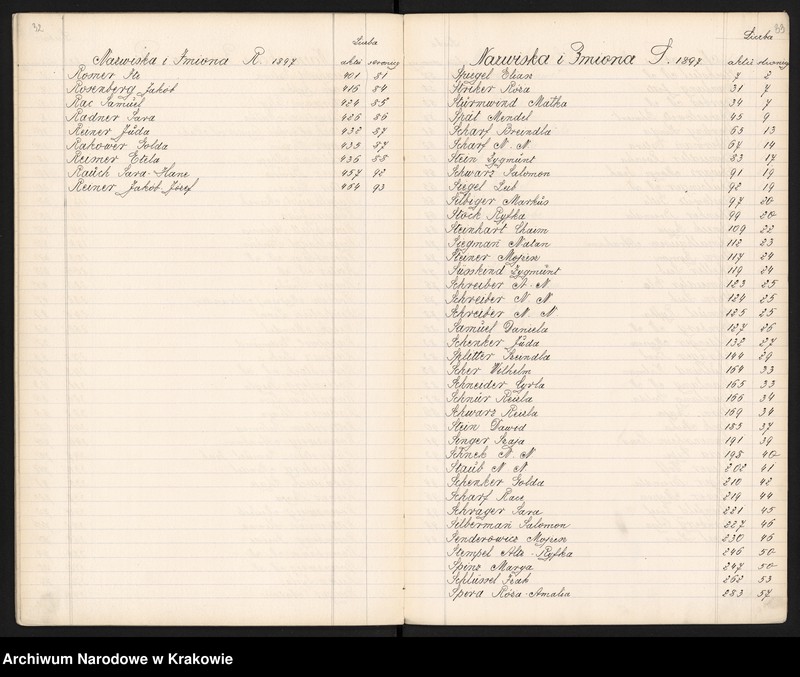 32
Liczba
Nazwiska i Imiona R. 1897 aktu stronicy
Romer Ite 401 81
Rosenberg Jakób 416 84
Rac Samuel 424 85
Radner Sara 426 86
Reiner Juda 432 87
Rakower Golda 435 87
Reimer Etela 436 88
Rauch Sara-Hane 457 92
Reiner Jakób Józef 464 93
33
Liczba
Nazwiska i Imiona S. 1897 aktu stronicy
Spiegel Elian 7 2
Striker Róza 31 7
Sturmwind Matka 34 7
Spät Mendel 45 9
Scharf Breindla 65 13
Scharf N. N. 67 14
Stein Zygmunt 83 17
Schwarz Salomon 91 19
Siegel Leib 92 19
Silbiger Markus 97 20
Stock Ryfka 99 20
Steinhart Chaim 109 22
Natan 112 23
Steiner Mojzesz 117 24
Susskind Zygmunt 119 24
Schreiber N. N. 123 25
Schreiber N. N. 124 25
Schreiber N. N. 125 25
Samuel Daniela 127 26
Schenker Juda 132 27
Spletter Breindla 144 29
Scher Wilhelm 164 33
Schneider Cyrla 165 33
Schnur Reisla 166 34
Schwarz Reisla 169 34
Stein Dawid 183 37
Senger Szaja 191 39
N. N. 198 40
Staub N. N. 202 41
Schenker Golda 210 42
Scharf Race 219 44
Schrager Sara 221 45
Silberman Salomon 227 46
Senderowicz Mojzesz 230 46
Stempel Alte-Ryfka 246 50
Spinz Marya 247 50
Schlüssel Izak 262 53
Spera Róza-Amalia 283 57
Archiwum Narodowe w Krakowie